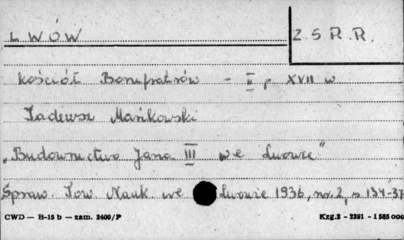 LWÓW
Z.S.R.R.
Kościół Bonifratrów - II p XVII w
Tadeusz Mańkowski
„Budownictwo Jana III we Lwowie"
Spraw. Tow. Nauk. we Lwowie 1936, no. 2, s 134-37
CWD — B-15 b — zam. 2400/P
Kzg.2 - 2291 - 1 585 000